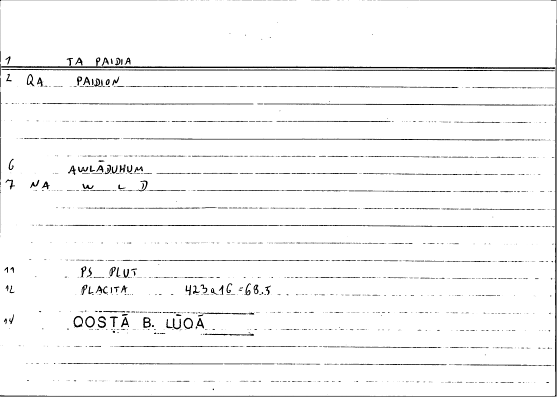 1 TA PAIDIA
2 QA PAIDION
6 AWLĀDUHUM
7 NA W L D
11 PS PLUT
12 PLACITA 423a16=68.5
14 QOSTĀ B. LŪQĀ